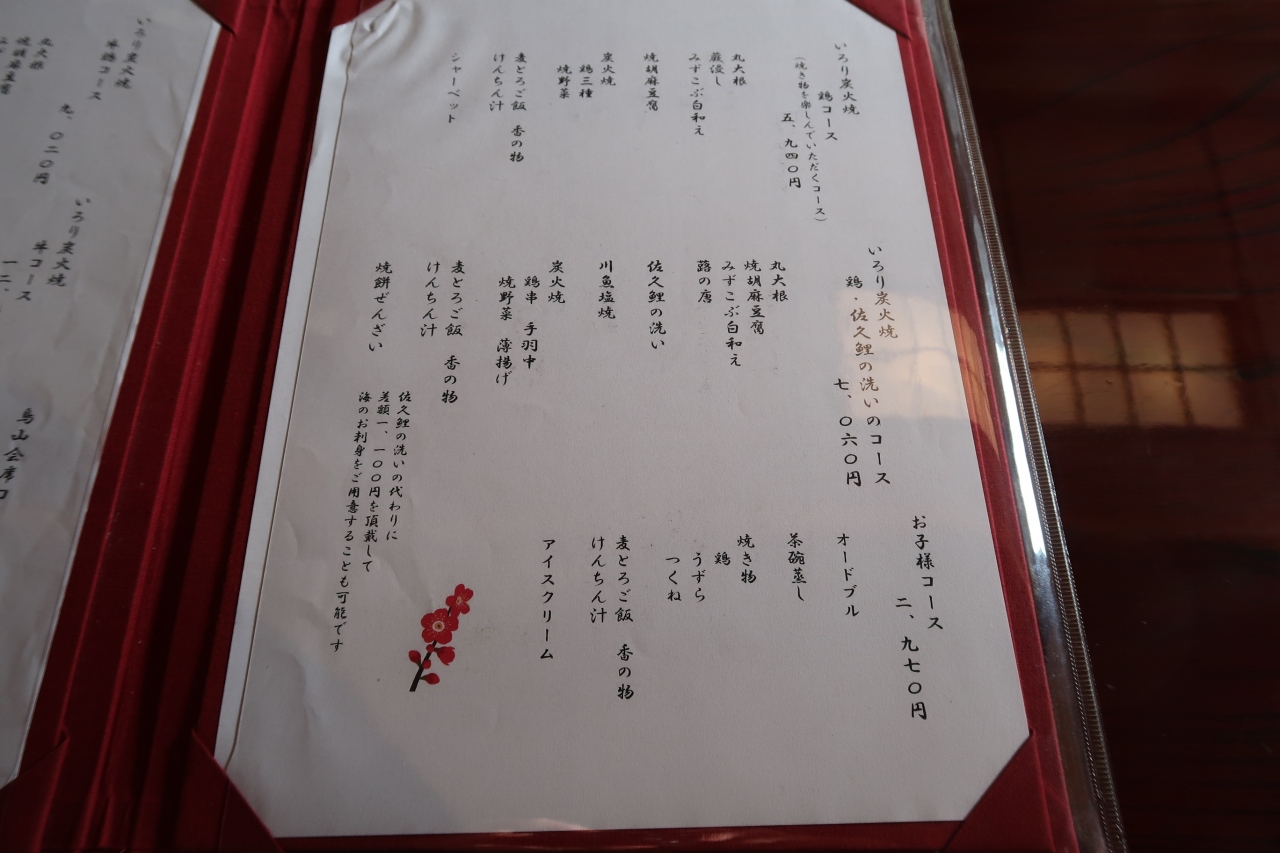 いろり炭火焼
鶏コース
(焼き物を楽しんでいただくコース)
五、九四〇円
丸大根
蕨浸し
みずこぶ白和え
焼胡麻豆腐
炭火焼
鶏三種
焼野菜
麦とろご飯 香の物
けんちん汁
シャーベット
いろり炭火焼
鶏・佐久鯉の洗いのコース
七、〇六〇円
丸大根
焼胡麻豆腐
みずこぶ白和え
蕗の唐
佐久鯉の洗い
川魚塩焼
炭火焼
鶏串 手羽中
焼野菜 薄揚げ
麦とろご飯 香の物
けんちん汁
焼餅ぜんざい
佐久鯉の洗いの代わりに
差額一、一〇〇円を頂戴して
海のお刺身をご用意することも可能です
お子様コース
二、九七〇円
オードブル
茶碗蒸し
焼き物
鶏
うずら
つくね
麦とろご飯 香の物
けんちん汁
アイスクリーム
いろり炭火焼
牛鶏コース
九、〇二〇円
丸大根
焼胡麻豆腐
いろり炭火焼
牛コース
一二、
鳥山会席コ